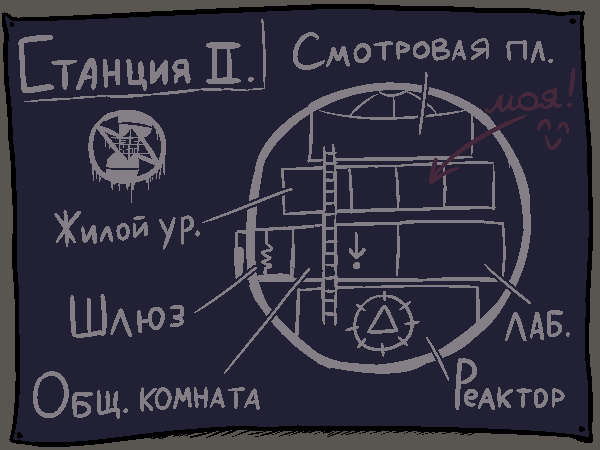 Станция II.
Смотровая пл.
моя!
Жилой ур.
Шлюз
Лаб.
Общ. комната
Реактор